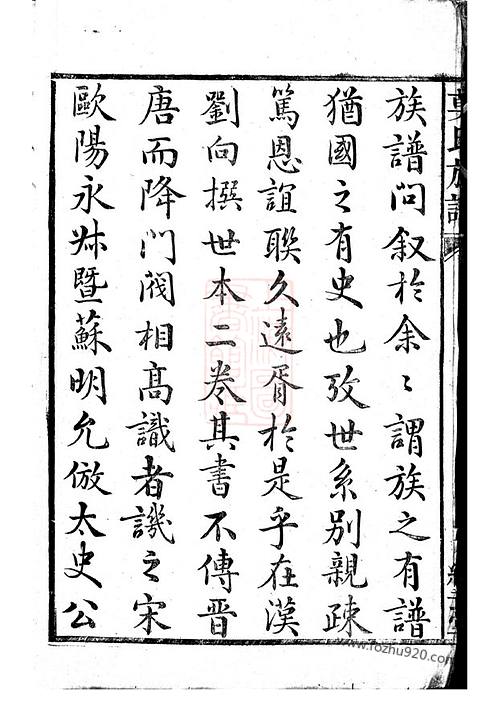 族譜問叙於余〻謂族之有譜
猶國之有史也攷世系别親疎
篤恩誼聯久遠胥於是乎在漢
劉向撰世本二卷其書不傳晋
唐而降門閥相高識者譏之宋
歐陽永叔暨蘇明允倣太史公
氏族譜
www.fozhu920.com